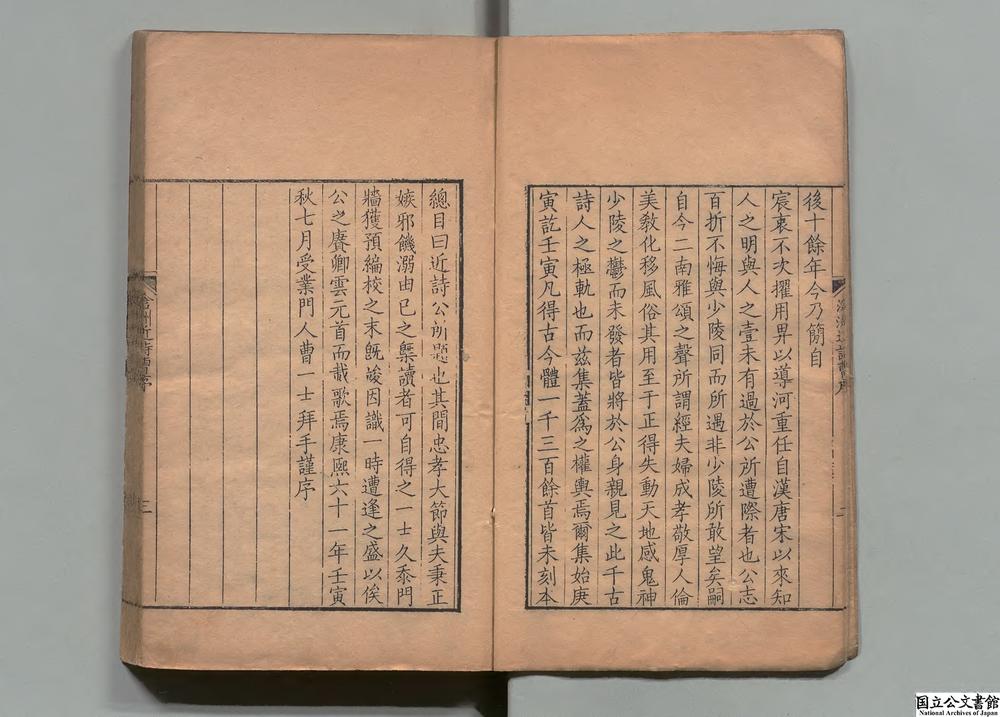 後十餘年今乃簡自
宸衷不次擢用畀以導河重任自漢唐宋以來知
人之明與人之壹未有過於公所遭際者也公志
百折不悔與少陵同而所遇非少陵所敢望矣嗣
自今二南雅頌之聲所謂經夫婦成孝敬厚人倫
美教化移風俗其用至于正得失動天地感鬼神
少陵之鬱而未發者皆將於公身親見之此千古
詩人之極軌也而茲集蓋爲之權輿焉爾集始庚
寅訖壬寅凡得古今體一千三百餘首皆未刻本
總目曰近詩公所題也其間忠孝大節與夫秉正
嫉邪饑溺由已之槩讀者可自得之一士久忝門
牆獲預編校之末旣竣因識一時遭逢之盛以俟
公之賡卿雲元首而載歌焉康熙六十一年壬寅
秋七月受業門人曹一士拜手謹序
三
国立公文書館
National Archives of Japan